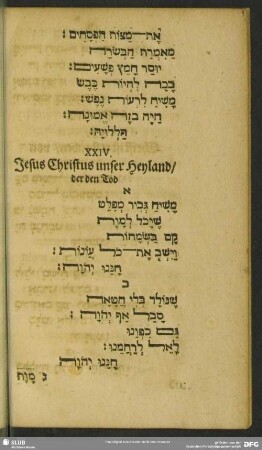 אֶת־מַצּוֹת הַפְּסָחִים:
מַאֲמַרְתְּ הַבְּשֹׂרָה
יוּסַר חָמֵץ פְּשָׁעִים:
לִהְיוֹת כֶּבֶשׂ
מָשִׁיחַ לִרְעוֹת נֶפֶשׁ:
חַיָּה בְזֹה אֱמוּנָה:
הַלְלוּיָהּ:
XXIV.
Jesus Christus unser Heyland/
der den Tod
א
מָשִׁיחַ גְּבִיר מְפַלֵּט
שֶׁיָּכֹל לַמָּוֶת
קָם בְּשִׂמְחוֹת
וַיִּשְׁבְּ אֶת־כֹּל עֲוֹנוֹת:
חָנֵּנוּ יְהֹוָה:
ב
שֶׁנּוֹלַד בְּלִי חַטָּאָה
סָבַל אַף יְהֹוָה:
גַּם כִּפְּנוּ
לָאֵל לְרַחֲמֵנוּ:
חָנֵּנוּ יְהֹוָה
ג מָוֶת
SLUB
DFG